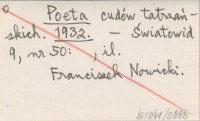 Poeta cudów tatrzań-
skich. 1932. – Światowid
9, nr 50: , il.
Franciszek Nowicki.